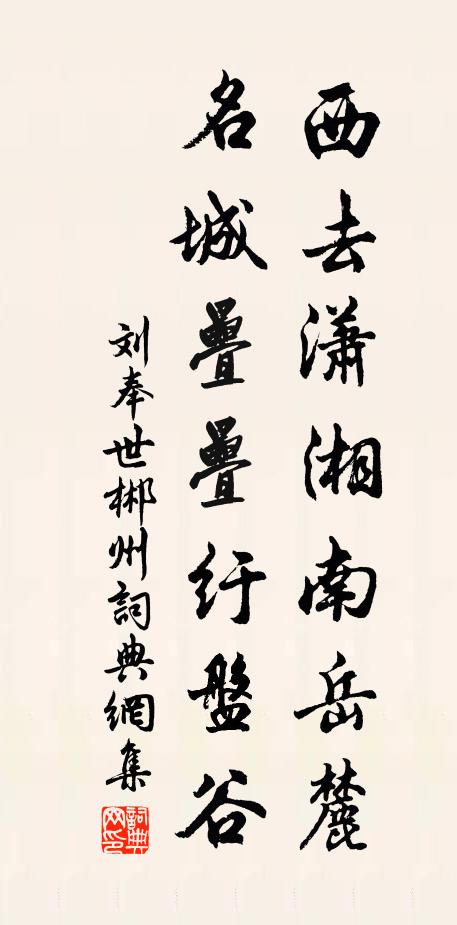 西去潇湘南岳麓
名城疊疊纡盤谷
刘奉世郴州詞典網集
詞典网印